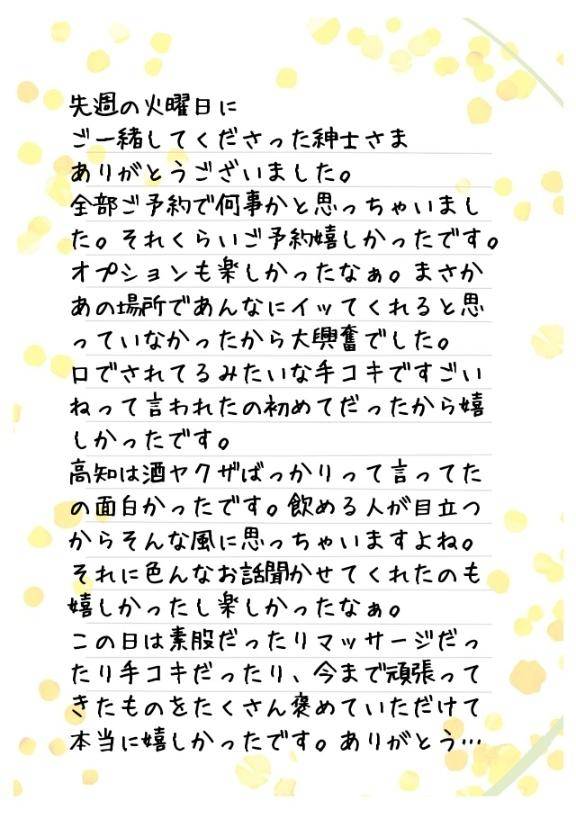 先週の火曜日に
ご一緒してくださった紳士さま
ありがとうございました。
全部ご予約で何事かと思っちゃいまし
た。それくらいご予約嬉しかったです。
オプションも楽しかったなぁ。まさか
あの場所であんなにイッてくれると思
っていなかったから大興奮でした。
口でされてるみたいな手コキですごい
ねって言われたの初めてだったから嬉
しかったです。
高知は酒ヤクザばっかりって言ってた
の面白かったです。飲める人が目立つ
からそんな風に思っちゃいますよね。
それに色んなお話聞かせてくれたのも
嬉しかったし楽しかったなぁ。
この日は素股だったりマッサージだっ
たり手コキだったり、今まで頑張って
きたものをたくさん褒めていただけて
本当に嬉しかったです。ありがとう…